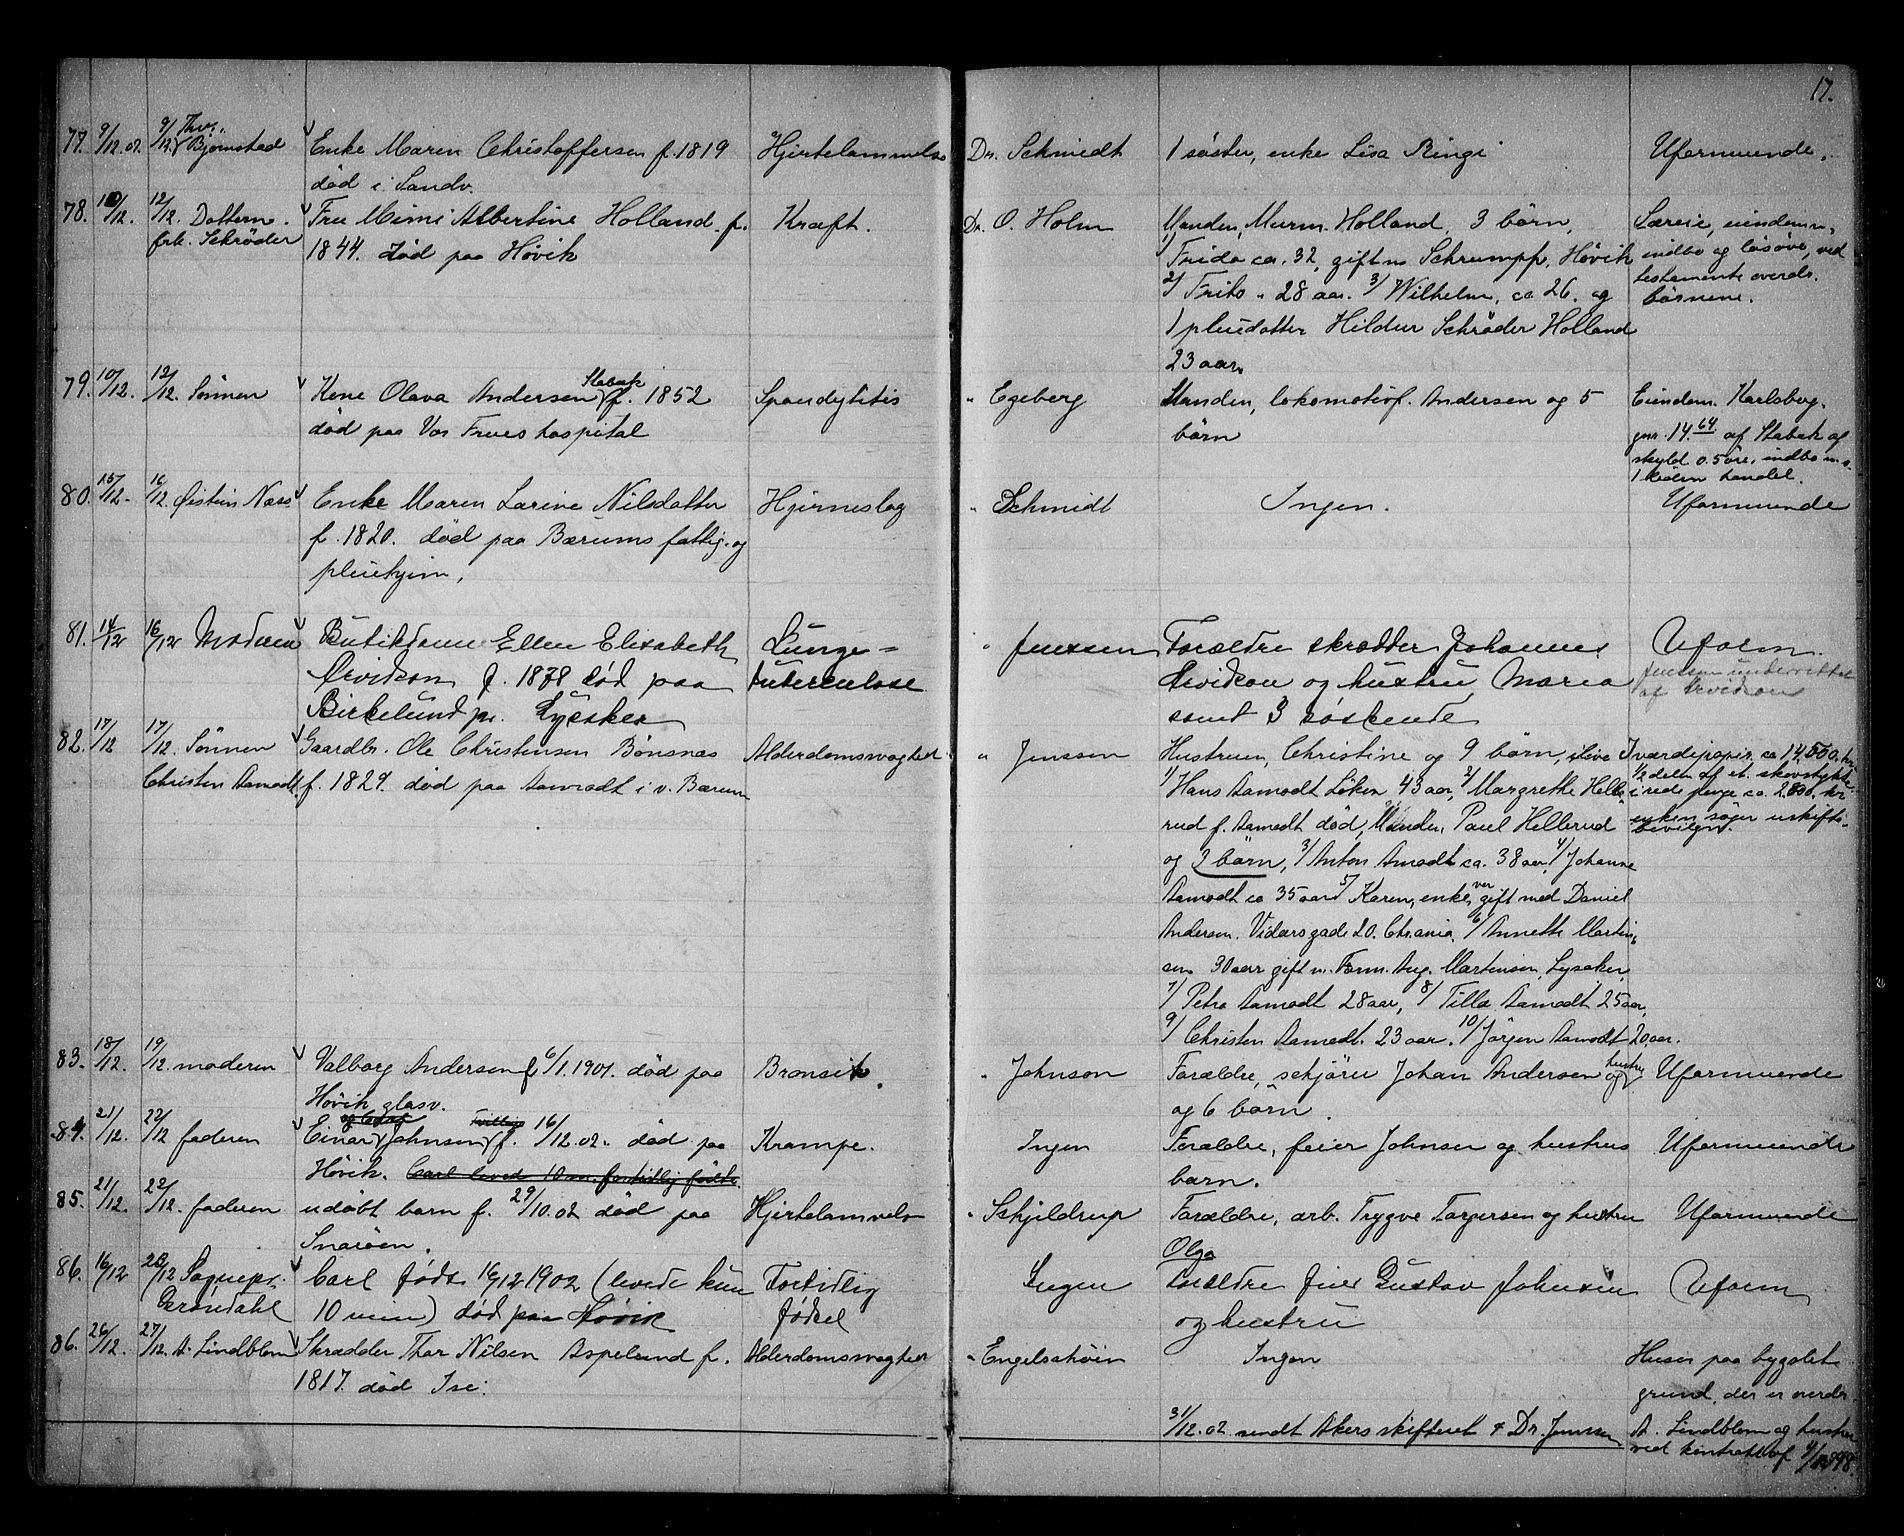 17.
77. 9/12.02. 9/12. Thv. Bjørnstad Enke Maren Christoffersen f. 1819 Hjertelammelse Dr. Schmidt 1 søster, enke Lisa Ringi Uformuende.
død i Sandv.
78. 10/12. 12/12. Dattern. Fru Mimi Albertine Holland f. Kræft. Dr. O. Holm Manden, Murm. Holland, 3 børn, Særeie, eiendom,
frk. Schrøder 1844. død paa Høvik 1/ Frida ca. 32, gift m Schrumpf, Høvik indbo og løsøre, ved
2/ Frits " 28 aar. 3/ Wilhelm, ca 26. og testamente overdr.
1 pleiedatter Hildur Schrøder Holland børnene.
23 aar.
79. 10/12. 12/12. Sønnen Kone Olava Andersen Stabæk f. 1852 Spondylitis " Egeberg Manden, lokomotivf. Andersen og 5 Eiendom. Karlsborg.
død paa Vor Frues hospital børn gnr. 14.64. af Stabæk af
skyld 0.5 øre, indbo
1 handel.
80. 15/12. 16/12. Øistein Næss Enke Maren Larine Nilsdatter Hjerneslag " Schmidt Ingen. Uformuende
f. 1820. død paa Bærums fattig. og
pleiehjem.
81. 14/12 16/12 Moderen Butikdame Ellen Elisabeth Lunge= " Jenssen Forældre skrædder Johannes Uform.
Arvidson f. 1878 død paa tuberculose Arvidson og hustru Maria Jenssen underrettet
Birkelund pr. Lysaker samt 3 søskende af Arvidson
82. 17/12 17/12. Sønnen Gaardbr. Ole Christensen Bønsnæs Alderdomsvaghed " Jenssen Hustruen, Christine og 9 børn, ilive I værdipapir. ca 14,500. kr.
Christen Aamodt. f. 1829. død paa Aamodt i v. Bærum 1/ Hans Aamodt Løken 43 aar, 2/ Margrethe Helle 1/2 delen af et skovstykke
rud f. Aamodt død, Manden, Paul Hellerud i rede penge ca. 2,800. kr
og 3 børn, 3/ Anton Amodt ca. 38 aar, 4/ Johanne enken søger uskifte-
Aamodt ca 35 aar 5/ Karen, enke, var gift med Daniel bevilgn.
Andersen. Vidarsgade 20. Chrania. 6/ Annette Martin
sen 30 aar gift m. Form. Aug. Martinsen, Lysaker,
7/ Petra Aamodt 28 aar, 8/ Tilla Aamodt 25 aar,
9/ Christen Aamodt. 23 aar. 10/ Jørgen Aamodt 20 aar.
83. 18/12. 19/12. moderen Valborg Andersen f. 6/1.1901. død paa Bronsit. " Johnson Forældre, Johan Andersen og hustru Uformuende
Høvik glasv. og 6 børn.
84. 21/12. 22/12 faderen Einar og Carl Johnsen tvillinge f. 16/12.02. død paa Krampe. Ingen Forældre, feier Johnsen og hustrus Uformuende
Høvik. Carl leved 10 m. fortidlig født. barn.
85. 21/12. 22/12. faderen udøbt barn f. 29/10.02 død paa Hjertelammelse " Schjeldrup Forældre, arb. Trygve Torgersen og hustru Uformuende
Snarøen. Olga
86. 16/12 23/12 Sognepr. Carl født 16/12 1902 (levede kun Fortidlig Ingen Forældre feier Gustav Johnsen Uform
Grøndahl 10 min) død paa Høvik fødsel og hustru
86. 26/12. 27/12. A. Lindblom Skrædder Thor Nilsen Aspelund f. Alderdomsvaghed " Engelschiøn Ingen Huser paa bygslet
1817. død grund, der er overdr.
31/12.02 sendt Akers skifteret & Dr. Jenssen A. Lindblom og hustru
ved kontrakt af 1898.